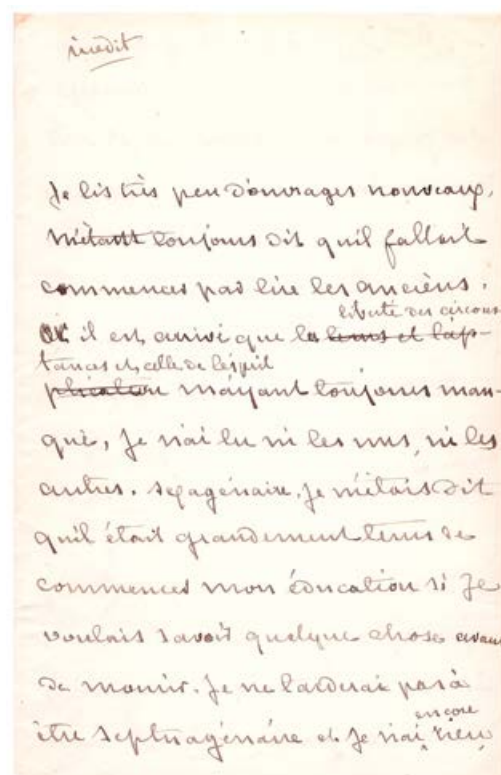 inédit
Je lis très peu d'ouvrages nouveaux,
m'étant toujours dit qu'il fallait
commencer par lire les anciens.
liberté des circons-
Or il est arrivé que la tems et l'ap-
tances et celle de l'esprit
plication m'ayant toujours man-
qué, Je n'ai lu ni les uns, ni les
autres. sexagénaire, Je m'étais dit
qu'il était grandement tems de
commencer mon éducation si Je
voulais savoir quelque chose avant
de mourir. Je ne tarderai pas à
encore
être septuagénaire et Je n'ai rien